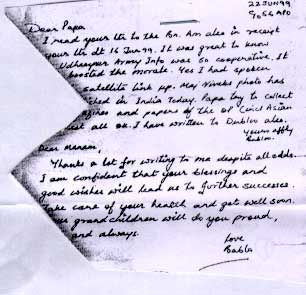 22 JUN 99
56 APO
Dear Papa,
I read your ltr to the Bn. Am also in receipt
your ltr dt 16 Jun 99. It was great to know
Udhampur Army Info was so cooperative. It
boosted the morale. Yes I had spoken
satellite link up. May Nivedi photo has
in India Today. Papa try to collect
and papers of the OP
all ok. I have written to Dubloo also.
Yours affly
Dear Mamam,
Thanks a lot for writing to me despite all odds.
I am confident that your blessings and
good wishes will lead us to further successes.
Take care of your health and get well soon.
grandchildren will do you proud,
and always.
Love
Babloo